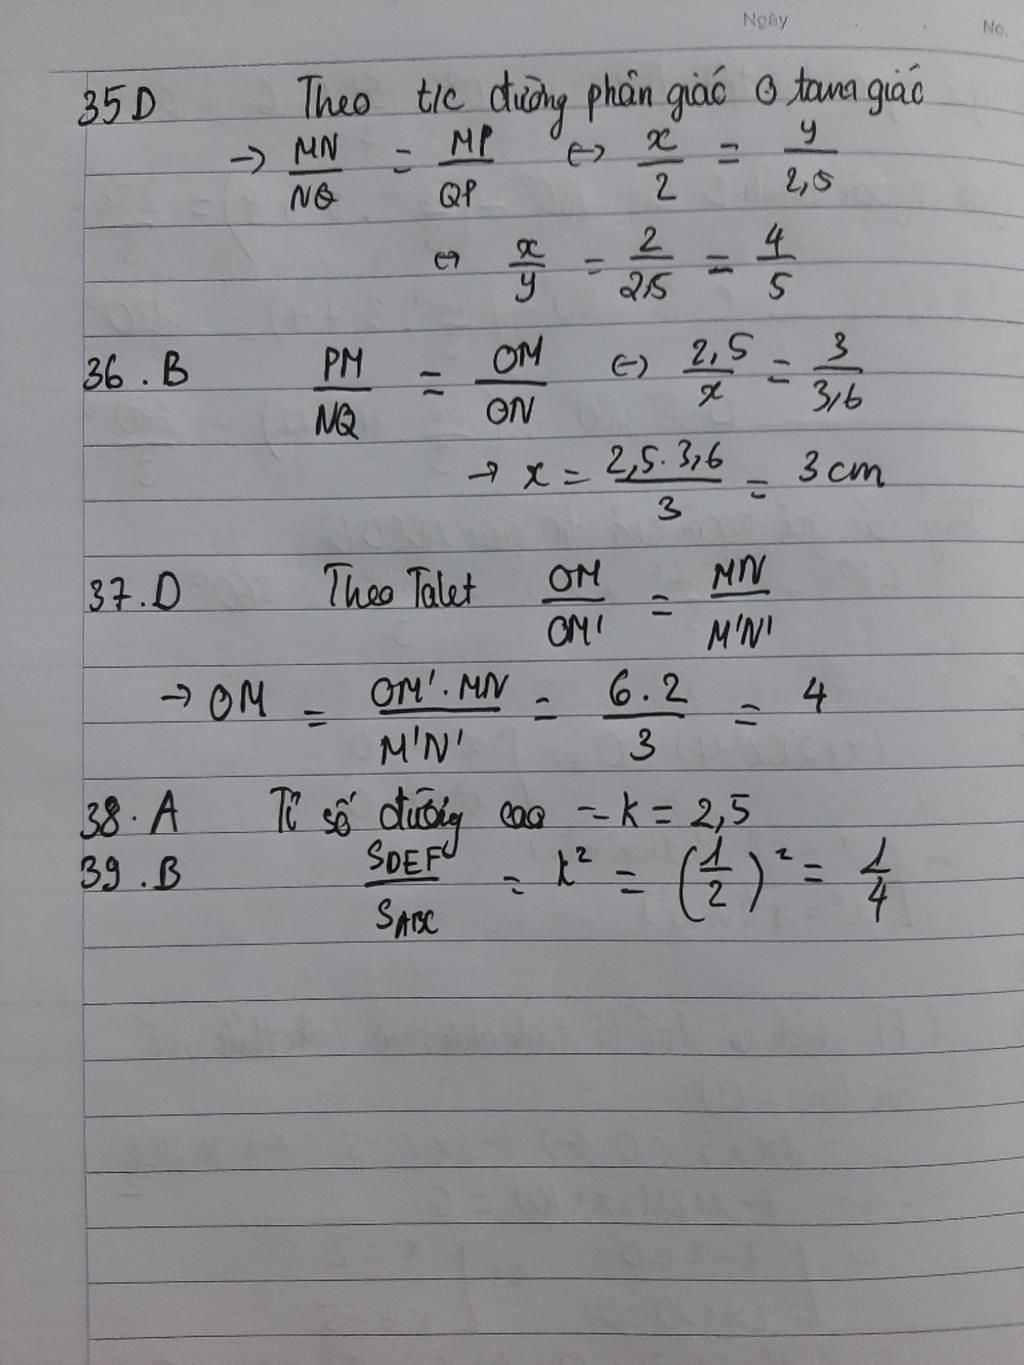 Ngày
No.
35D Theo t/c đường phân giác ở tam giác
→ MN/NQ = MP/QP ⇔ x/2 = y/2,5
⇔ x/y = 2/2,5 = 4/5
36. B PM/NQ = OM/ON ⇔ 2,5/x = 3/3,6
→ x = 2,5. 3,6/3 = 3 cm
37. D Theo Talet OM/OM' = MN/M'N'
→ OM = OM'. MN/M'N' = 6. 2/3 = 4
38. A Tỉ số đường cao = k = 2,5
39. B SDEF/SABC = k² = (1/2)² = 1/4